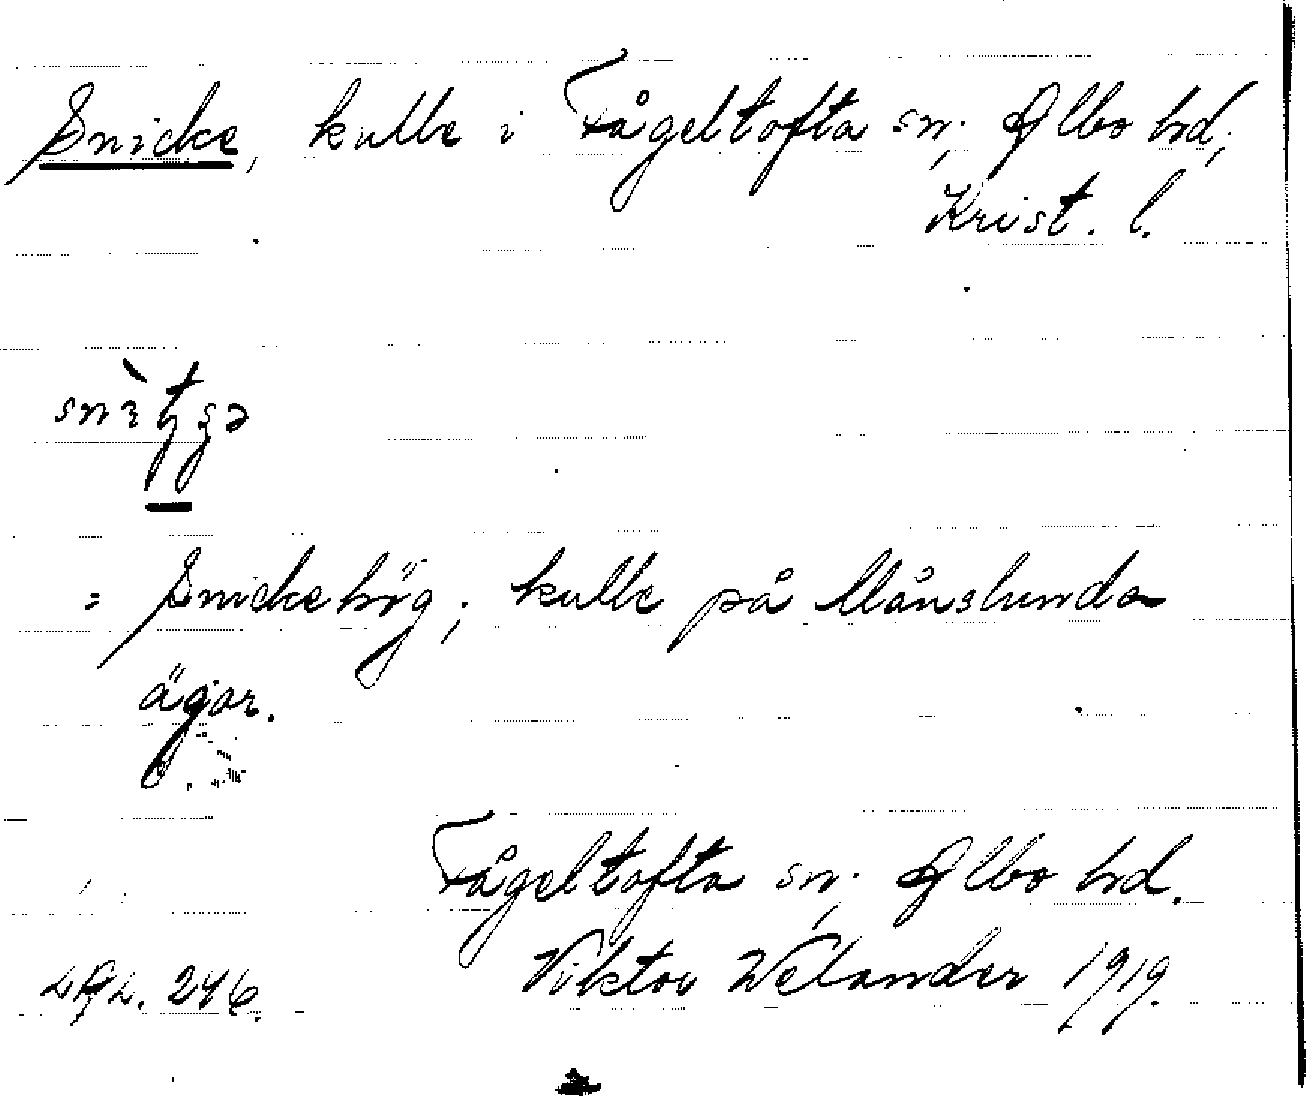 Snicke, kulle i Fågeltofta sn., Albo hd.,
Krist. l.
= Snickehög, kulle på Månslunda
ägor.
Fågeltofta sn., Albo hd.
246. Viktor Welander 1919.